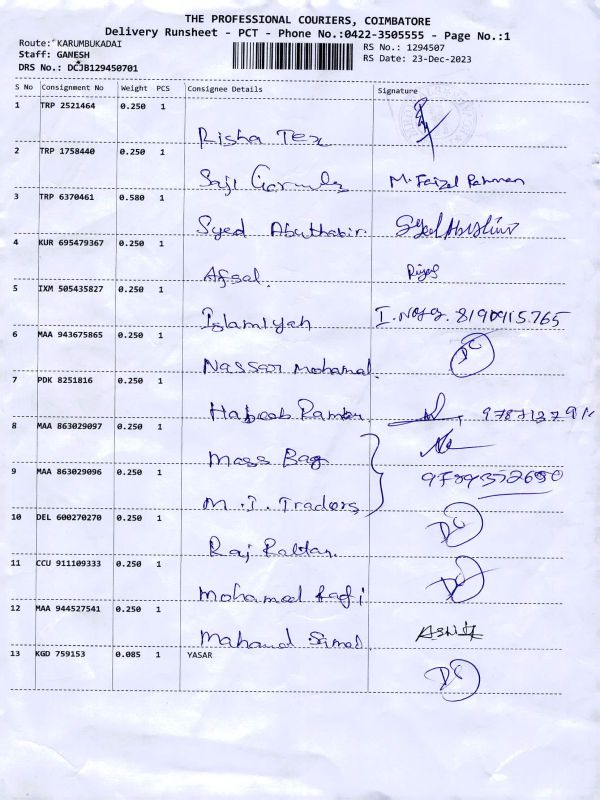 THE PROFESSIONAL COURIERS, COIMBATORE
Delivery Runsheet - PCT - Phone No.:0422-3505555 - Page No.:1
Route: KARUMBUKADAI RS No.: 1294507
Staff: GANESH RS Date: 23-Dec-2023
DRS No.: DCJB129450701
S No Consignment No Weight PCS Consignee Details Signature
1 TRP 2521464 0.250 1
Risha Tex
2 TRP 1758440 0.250 1
Saji M. Faizal Rahman
3 TRP 6370461 0.580 1
Syed Abuthahir.
4 KUR 695479367 0.250 1
Afsal. Riyas
5 IXM 505435827 0.250 1
Islamiyah
6 MAA 943675865 0.250 1
Nassar Mohamad. DC
7 PDK 8251816 0.250 1
Habeeb
8 MAA 863029097 0.250 1
Mass Bag
9 MAA 863029096 0.250 1
M.I. Traders
10 DEL 600270270 0.250 1 DC
Raj
11 CCU 911109333 0.250 1
Mohamed Rafi DC
12 MAA 944527541 0.250 1
Mahamud
13 KGD 759153 0.085 1 YASAR
DC